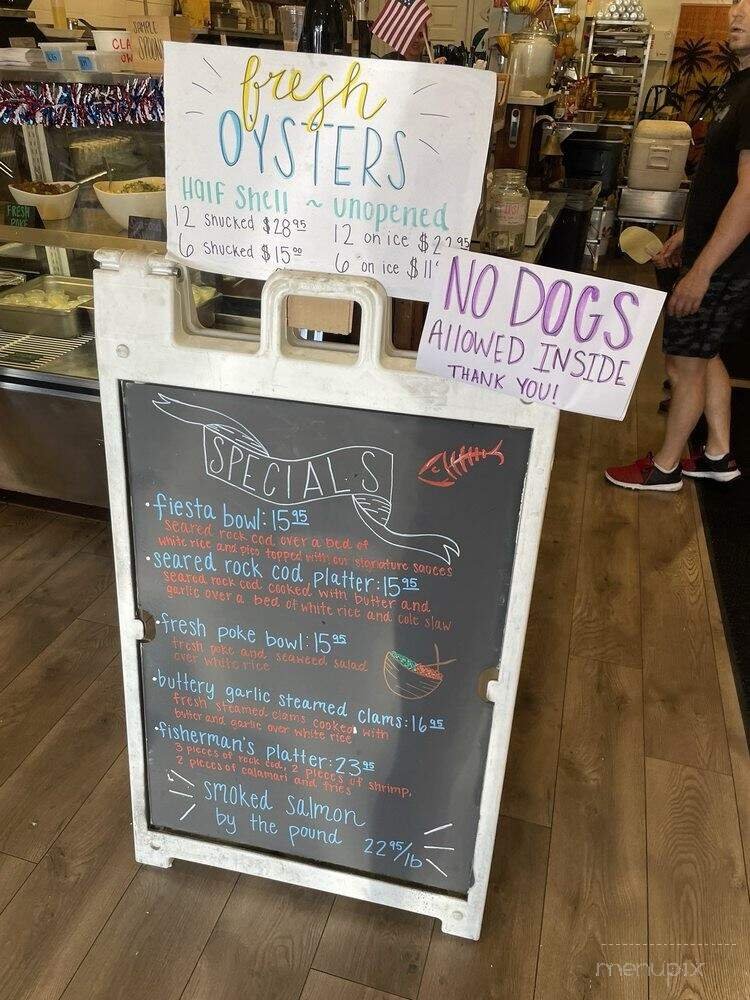 SAMPLE
SPOONS
FRESH
POKE
fresh
OYSTERS
Half Shell ~ unopened
12 shucked $28⁹⁵
12 on ice $22⁹⁵
6 shucked $15⁰⁰
6 on ice
NO DOGS
AllOWED INSIDE
THANK YOU!
SPECIALS
•fiesta bowl: 15⁹⁵
seared rock cod over a bed of
white rice and pico topped with our signature sauces
•seared rock cod platter: 15⁹⁵
seared rock cod cooked with butter and
garlic over a bed of white rice and cole slaw
•fresh poke bowl: 15⁹⁵
fresh poke and seaweed salad
over white rice
•buttery garlic steamed clams: 16⁹⁵
fresh steamed clams cooked with
butter and garlic over white rice
•fisherman's platter: 23⁹⁵
3 pieces of rock cod, 2 pieces of shrimp,
2 pieces of calamari and fries
smoked salmon
by the pound
22⁹⁵/lb
menupix